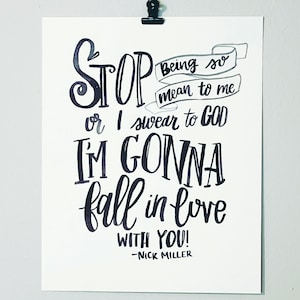 STOP Being so
mean to me
or I swear to GOD
I'M GONNA
fall in love
WITH YOU!
-NICK MILLER